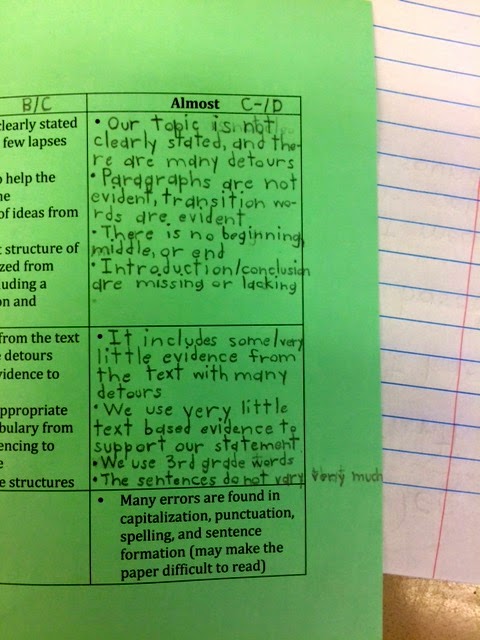 B/C
Almost C-/D
clearly stated
few lapses
o help the
ne
of ideas from
structure of
zed from
luding a
on and
• Our topic is not
clearly stated, and the-
re are many detours
• Paragraphs are not
evident, transition wo-
rds are evident
• There is no beginning,
middle, or end
• Introduction/conclusion
are missing or lacking
from the text
e detours
vidence to
appropriate
bulary from
encing to
e
e structures
• It includes some/very
little evidence from
the text with many
detours
• We use very little
text based evidence to
support our statement
• We use 3rd grade words
• The sentences do not vary very much
• Many errors are found in
capitalization, punctuation,
spelling, and sentence
formation (may make the
paper difficult to read)